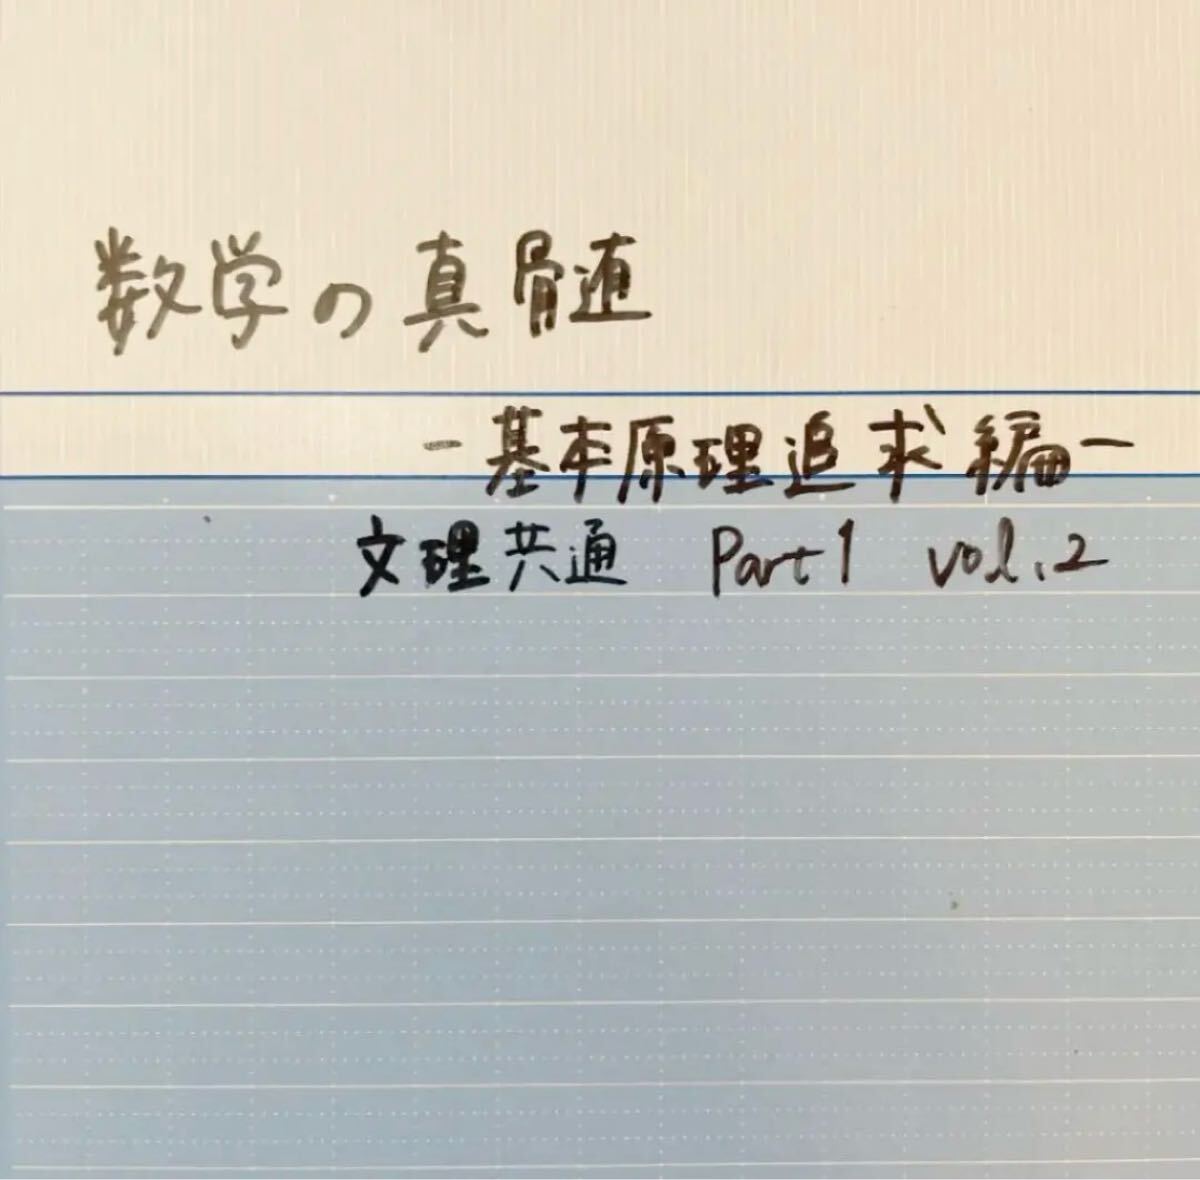 数学の真骨髄
-基本原理追求編-
文理共通 Part1 vol.2